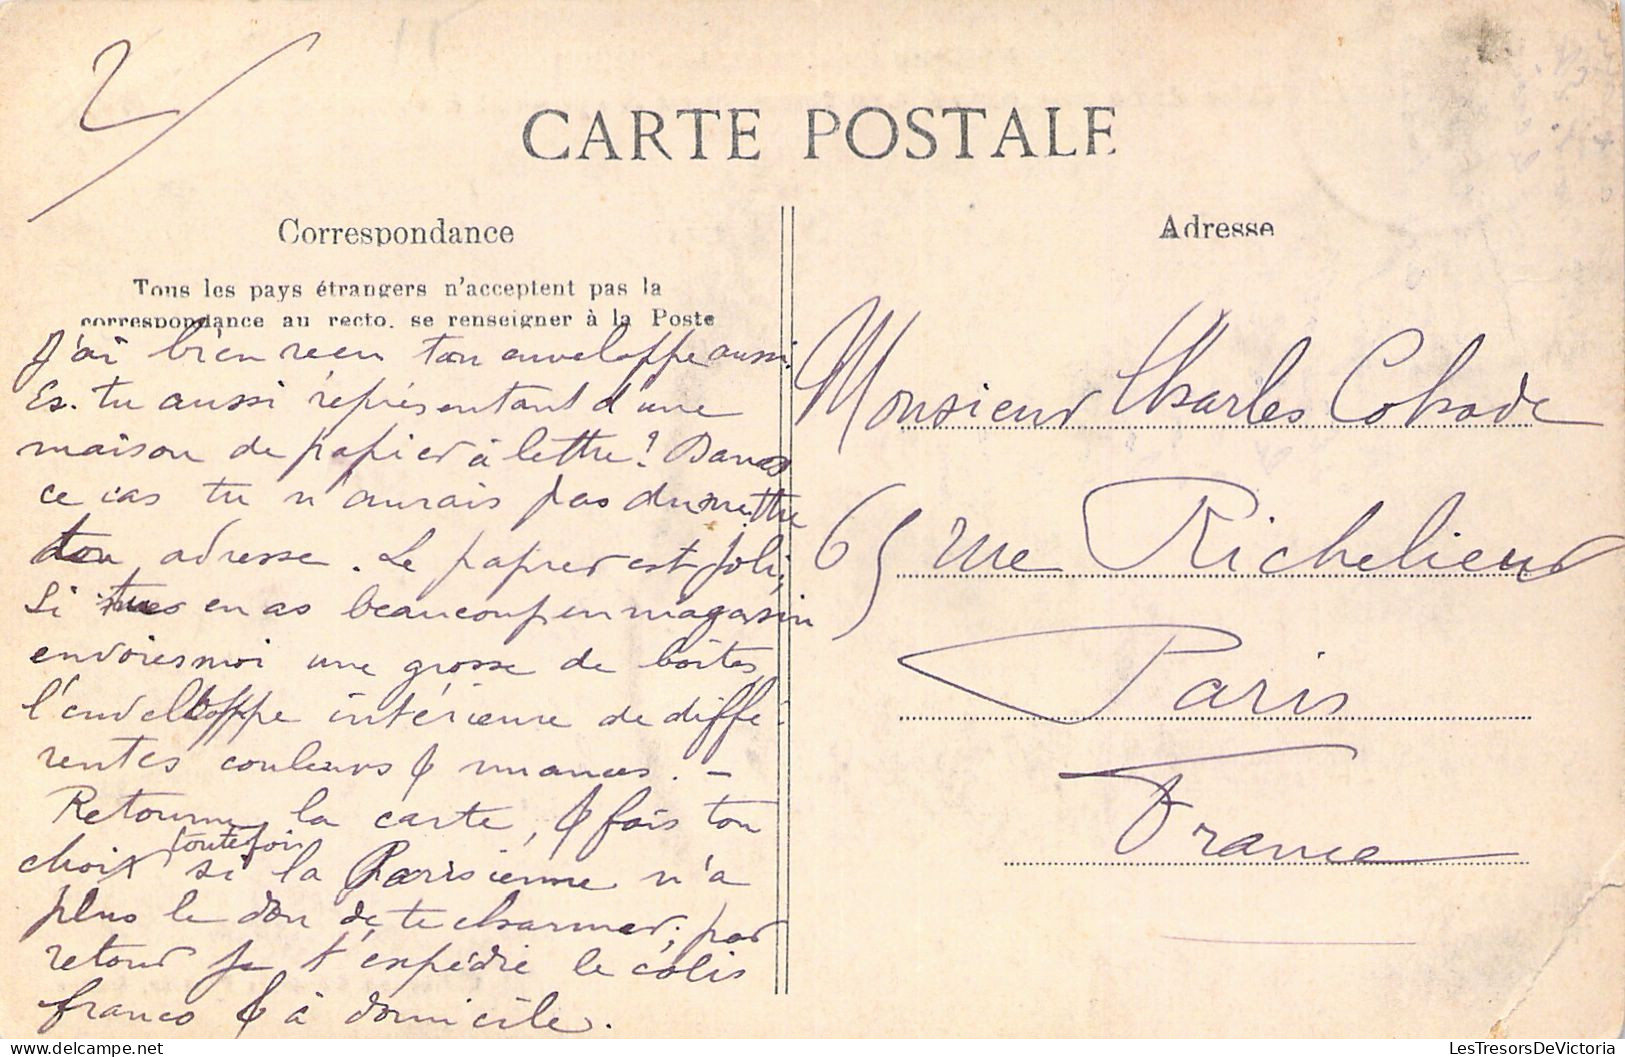 2/
CARTE POSTALE
Correspondance
Tous les pays étrangers n'acceptent pas la
correspondance au recto, se renseigner à la Poste
J'ai bien reçu ton enveloppe aussi.
Es-tu aussi représentant d'une
maison de papier à lettre? Dans
ce cas tu n'aurais pas du mettre
ton adresse. Le papier est joli,
Si tu en as beaucoup en magasin
envoies moi une grosse de boîtes
l'enveloppe intérieure de diffé-
rentes couleurs & nuances. —
Retourne la carte, & fais ton
choix toutefois si la Parisienne n'a
plus le don de te charmer; par
retour je t'expédie le colis
franco & à domicile.
Adresse
Monsieur Charles Cobade
65 rue Richelieu
Paris
France
LesTresorsDeVictoria